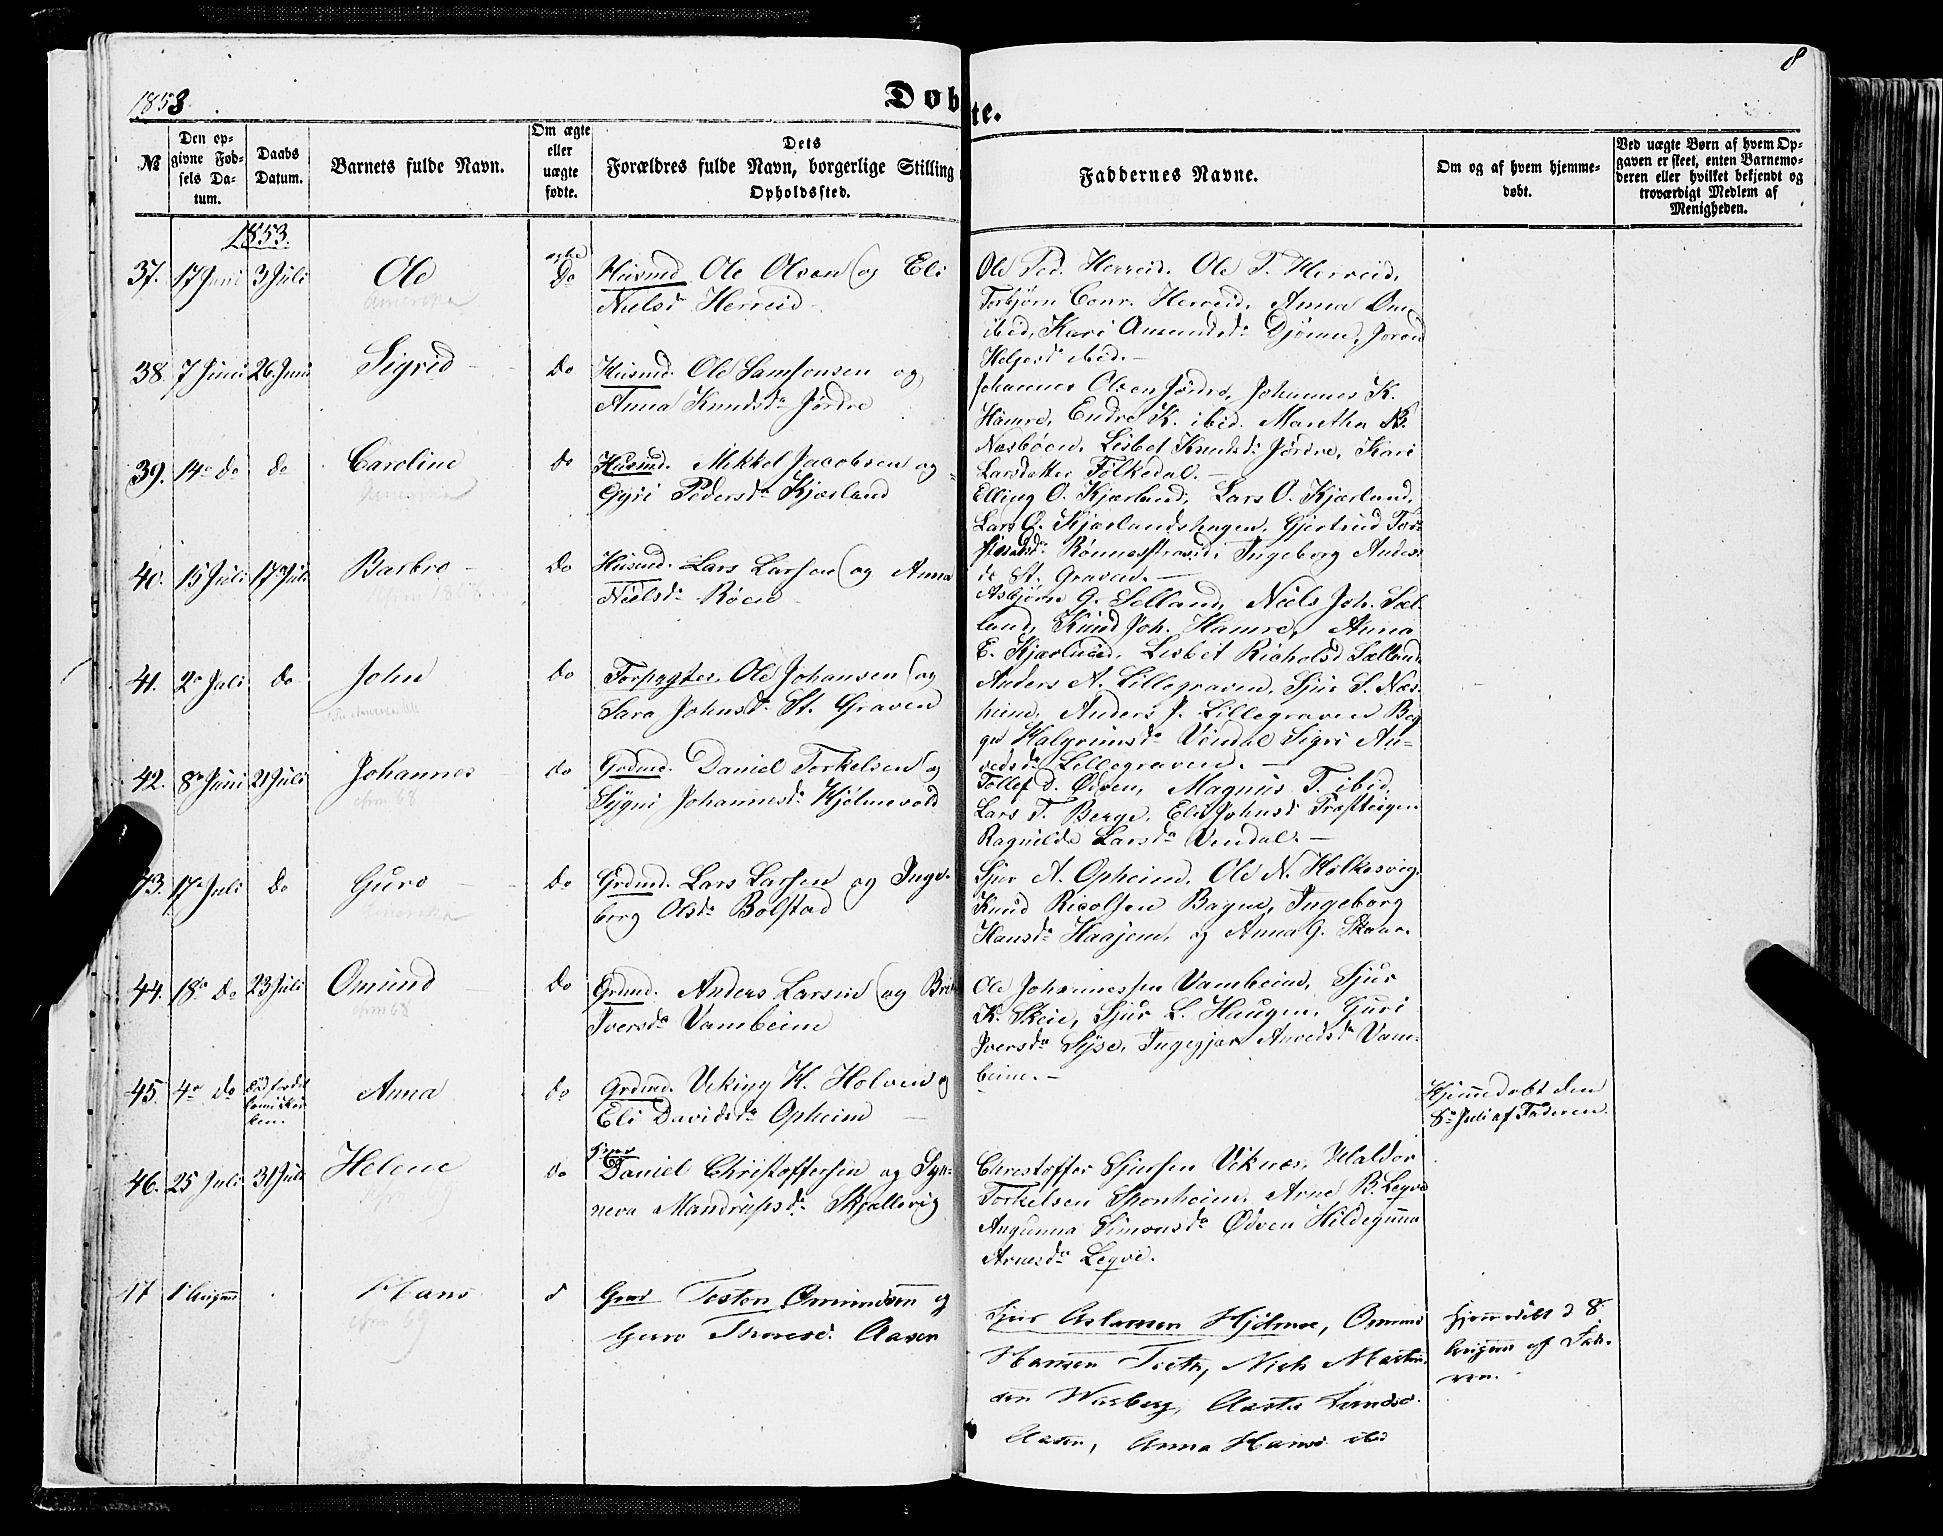 8
1853.
Døbte.
№
Den op-
givne Fød-
sels Da-
tum.
Daabs
Datum.
Barnets fulde Navn.
Om ægte
eller
uægte
fødte.
Dets
Forældres fulde Navn, borgerlige Stilling
Opholdssted.
Faddernes Navne.
Om og af hvem hjemme-
døbt.
Ved uægte Børn af hvem Op-
gaven er skeet, enten Barnemo-
deren eller hvilket bekjendt og
troværdigt Medlem af
Menigheden.
1853.
37. 17 Juni 3 Juli Ole ægte Do Huusmd. Ole Olsen og Eli
Nielsdr Herreid
Amerika
Ole Ped. Herreid. Ole T. Herreid,
Torbjørn Conr. Herreid, Anna
ibid, Kari Amundsdr Djønne,
Helgesdr ibid.
38. 7 Juni 26 Juni Sigrid do Huusmd. Ole Samsonsen og
Anna Knudsdr Jørdre
Johannes Olsen Jørdre, Johannes K.
Hamre, Endre K. ibid. Maretha B.
Næsbøen, Lisbet Knudsdr Jørdre, Kari
Larsdatter Folkedal.
39. 14 do do Caroline do Huusmd. Mikkel Jacobsen og
Gyri Pedersdr Kjærland
Amerika
Elling O. Kjærland, Lars O. Kjærland,
Lars O. Kjærlandshagen, Gjertrud Tor-
Rønnestrand, Ingeborg Anders-
dr St. Graven.
40. 15 Juli 17 Juli Barbro do Huusmd. Lars Larsen og Anna
Nielsdr Røen
Asbjørn G. Selland, Niels Joh. Sæl-
land, Knud Joh. Hamre, Anna
E. Kjærland, Lisbet Sælland
41. 2 Juli do John do Forpagter. Ole Johansen og
Sara Johnsdr. St. Graven
Anders A. Lillegraven, Sjur S. Næs-
heim, Anders J. Lillegraven
Halgrimsdr Vindal Sigri An-
vedsdr Lillegraven.
42. 8 Juni 21 Juli Johannes do Grdmd. Daniel Torkelsen og
Sygni Johannesdr Hjelmevold
cfrm 68
Tollef d. Ødven, Magnus T. ibid,
Lars T. Berge, Eli Johnsdr
Ragnilda Larsdr Vindal.
43. 17 Juli do Guro do Grdmd. Lars Larsen og Inge-
borg Olsdr Bolstad
Amerika
Sjur A. Opheim, Ole N. Holkesvig
Knud Ricolfsen Bagne, Ingeborg
Hansdr Haajem, og Anna G. Skaar.
44. 18 do 23 Juli Omund do Grdmd. Anders Larsen og
Iversdr Vambeim
cfrm 68
Ole Johannessen Vambeim, Sjur
K. Skeie, Sjur L. Haugen, Guri
Iversdr Syse, Ingegjær Anvedsdr Vam-
beim.
45. 4 do Anna do Grdmd. Viking H. Holven og
Eli Davidsdr Opheim
Hjemmedøbt den
8 Juli af Faderen
46. 25 Juli 31 Juli Helene do Daniel Christoffersen og Syn-
neva Mandrupsdr Skjellevig
Christoffer Sjursen Viknæs, Haldor
Torkelsen Sponheim, Arne R. Legve
Angunna Simonsdr Ødven Hildegunna
Arnesdr Legve.
47 1 August Hans d Torsten Omundsen og
Guro Thoresd. Aasen
cfrm 69
Sjur Aslaksen Hjelmoe, Omund
Hansen Tveite, Niels
Warberg, Aasta
Aasen, Anna Hansd ibid
hjemmedøbt d 8
August af Fade-
ren.